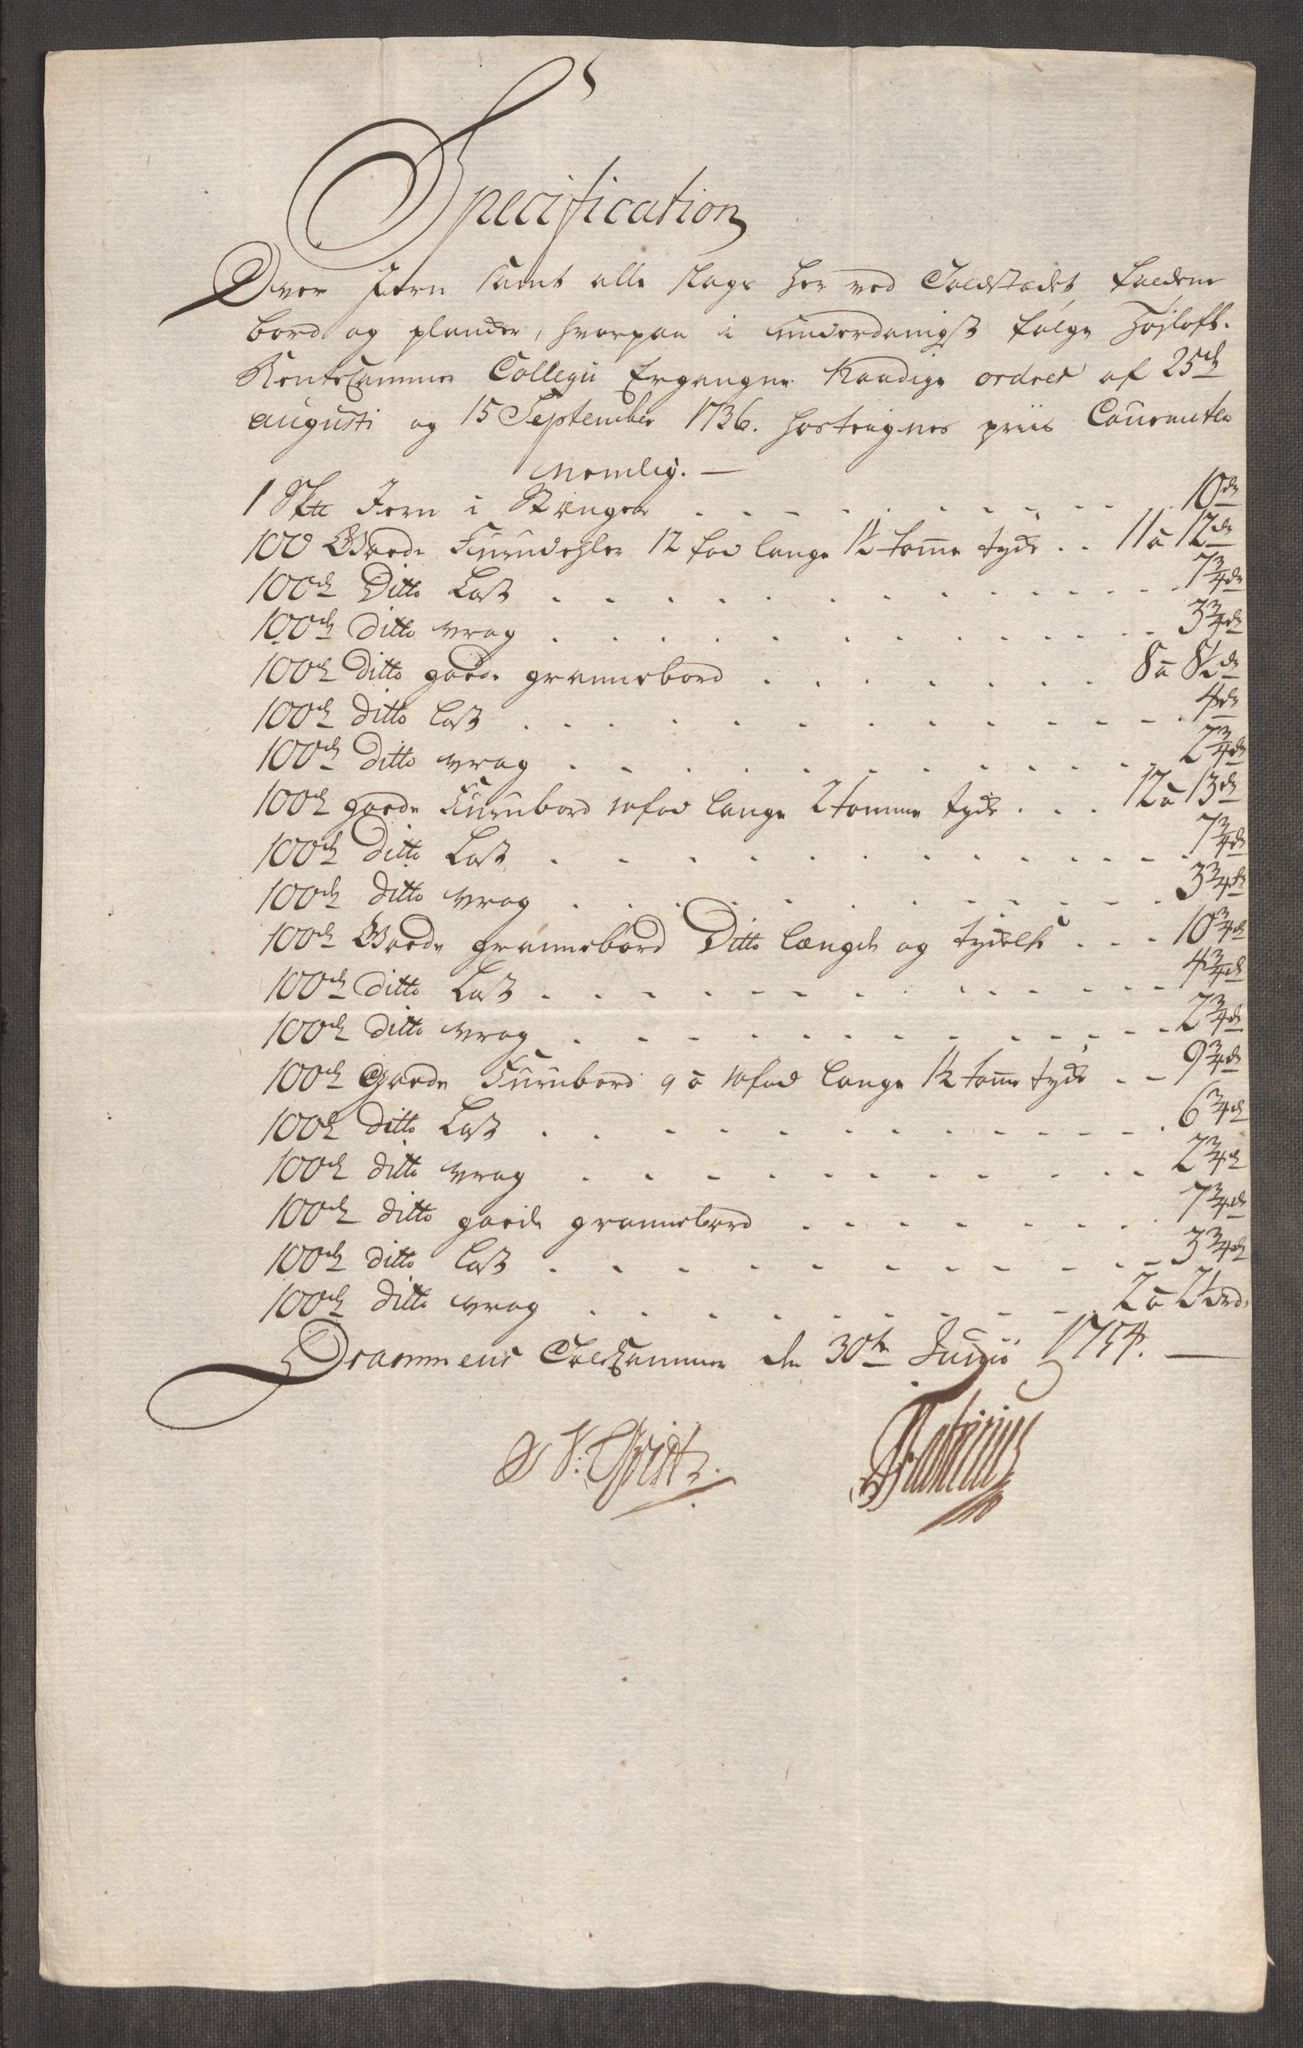 Specification
Over Jern samt alle slags her ved Toldstædet faldene
bord og plancker, hvorpaa i underdanigst følge Højlofl.
RenteCammer Collegii Ergangne Naadige ordres af 25de
augusti og 15 September 1736. hostegnes priis Couranten
Nemlig. —
1 Sk℔ Jern i Stænger . . . 10 rd
100 Goede Furudehler 12 fod lange 1½ tomme tyck . . 11 a 12 rd
100de Ditto Last . . . 7¾ rd
100de Ditto vrag . . . 3¾ rd
100de Ditto goede grannebord . . . 8 a 8½ rd
100de Ditto last . . . 4 rd
100de Ditto vrag . . . 2¾ rd
100de goede Furubord 10 fod lange 2 tomme tyck . . . 12 a 13 rd
100de Ditto Last . . . 7¾ rd
100de Ditto vrag . . . 3¾ rd
100de Goede grannebord Ditto længde og tyckelse . . . 10¾ rd
100de ditto Last . . . 4¾ rd
100de ditto vrag . . . 2¾ rd
100de Goede Furubord 9 a 10 fod lange 1½ tomme tyck . . 9¾ rd
100de ditto Last . . . 6¾ rd
100de ditto vrag . . . 2¾ rd
100de ditto goede grannebord . . . 7¾ rd
100de ditto last . . . 3¾ rd
100de ditto vrag . . . 2 a 2½ rd.
Drammens ToldCammer den 30te Junii 1754. —